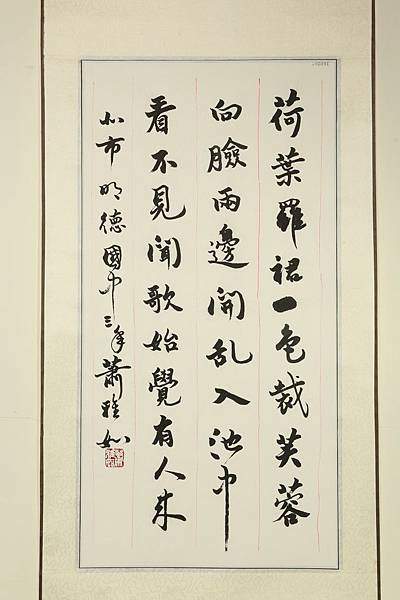 荷葉羅裙一色裁芙蓉
向臉兩邊開乱入池中
看不見聞歌始覺有人来
北市明德國中三年蕭雅如